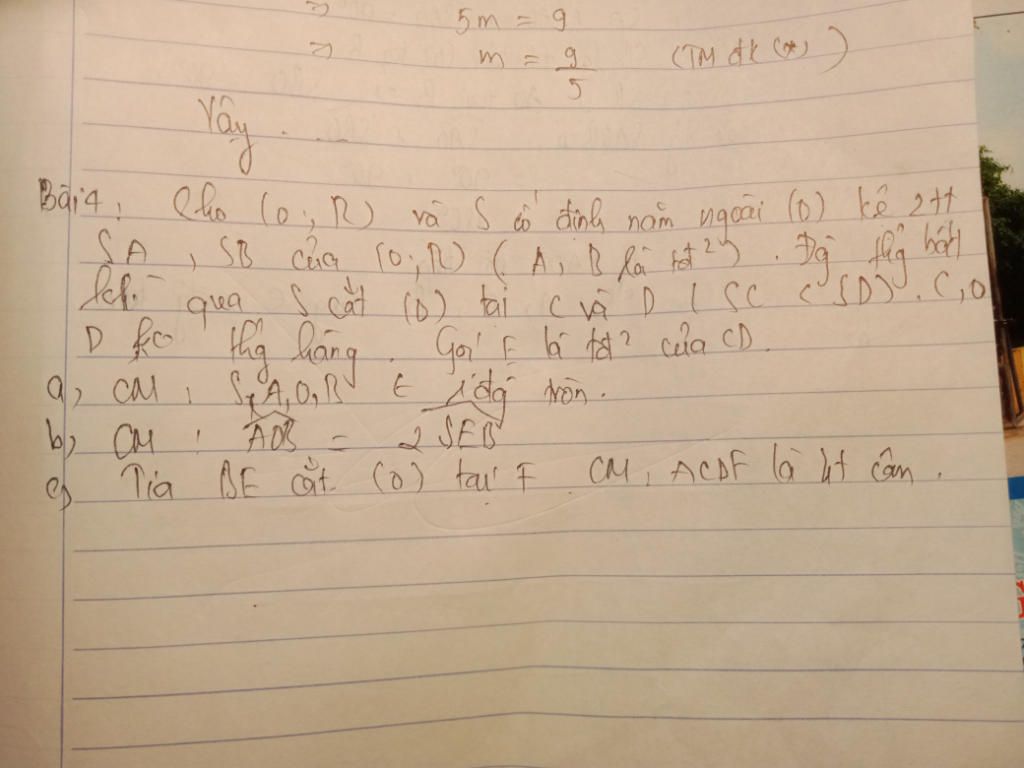 ⇒ 5m = 9
⇒ m = 9/5 (TM đk (*))
Vậy . . .
Bài 4, Cho (O; R) và S cố định nằm ngoài (O) kẻ 2 tt
SA, SB của (O; R) (A, B là tđ²). Đg thg bất
kì qua S cắt (O) tại C và D (SC < SD). C, O
D ko thg hàng. Gọi E là tđ² của CD.
a, CM: S, A, O, B ∈ 1 đg tròn.
b, CM: AOB = 2 SEB
c, Tia BE cắt (O) tại F. CM: ACDF là ht cân.